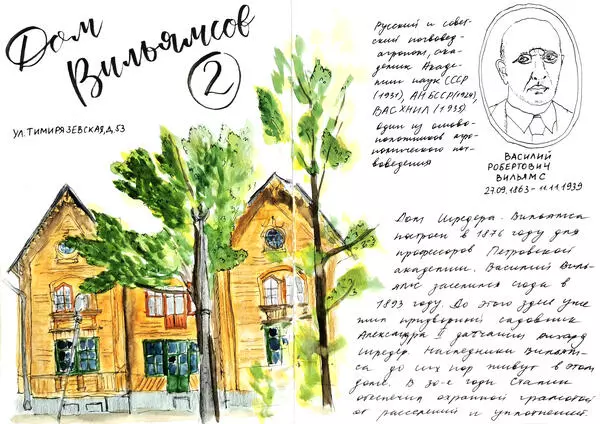 Дом
Вильямсов
2
ул. Тимирязевская, д. 53
Русский и совет-
ский почвовед-
агроном, ака-
демик Акаде-
мии наук СССР
(1931), АН БССР (1929),
ВАСХНИЛ (1935)
один из осново-
положников агро-
номического поч-
воведения
ВАСИЛИЙ
РОБЕРТОВИЧ
ВИЛЬЯМС
27.09.1863 - 11.11.1939
Дом Шредера - Вильямса
построен в 1876 году для
профессоров Петровской
академии. Василий Виль-
ямс заселился сюда в
1893 году. До этого здесь уже
жил придворный садовник
Александра II датчанин Рихард
Шредер. Наследники Вильям-
са до сих пор живут в этом
доме. В 30-е годы Сталин
обеспечил охранной грамотой
от расселений и уплотнений.